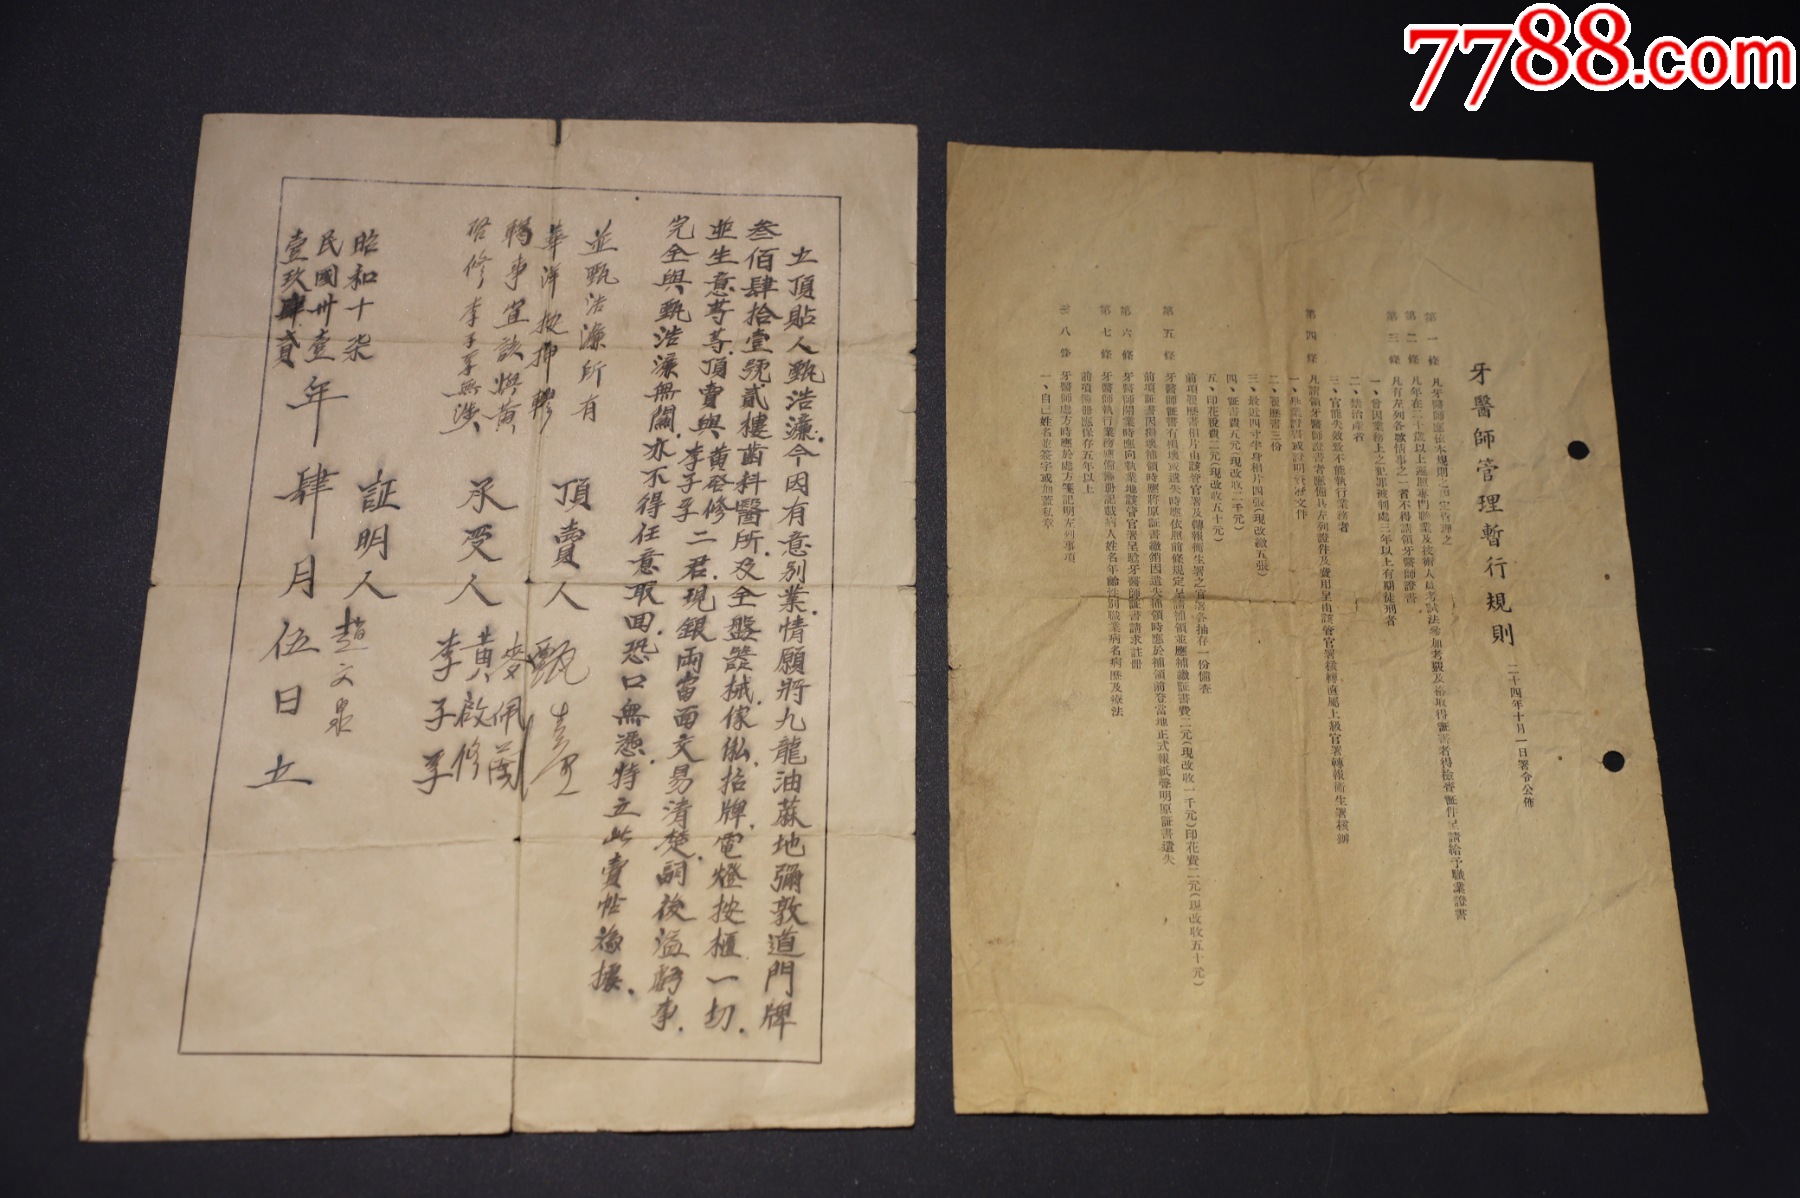 7788.com
立頂貼人甄浩濂.今因有意別業.情願將九龍油蔴地彌敦道門牌
叁佰肆拾壹號貳樓齒科醫所.及全盤器械.傢俬.招牌.電燈按櫃一切.
並生意等等.頂賣與黃啓修李子孚二君.現銀兩當面交易清楚.嗣後溢虧事.
完全與甄浩濂無關.亦不得任意取回.恐口無憑.特立此賣帖為據.
並甄浩濂所有
華洋按揭轇
轕事宜該與黃
啓修李子孚無涉
頂賣人 甄
麥佩蘭
承受人 黃啟修
李子孚
証明人 趙文泉
昭和十柒
民國卅壹年肆月伍日立
壹玖肆貳
牙醫師管理暫行規則 二十四年十月一日署令公佈
第一條 凡牙醫師應依本規則之規定管理之
第二條 凡年在二十歲以上遵照專門職業及技術人員考試法參加考驗及格取得證書者得檢齊証件呈請給予職業證書
第三條 凡有左列各款情事之一者不得請領牙醫師證書
一、曾因業務上之犯罪被判處三年以上有期徒刑者
二、禁治產者
三、官能失效暨不能執行業務者
第四條 凡請領牙醫師證書者應備具左列證件及費用呈由該管官署核轉直屬上級官署轉報衛生署核辦
一、畢業證書或證明資歷文件
二、履歷書三份
三、最近四寸半身相片四張(現改繳五張)
四、証書費五元(現改收二千元)
五、印花稅費二元(現改收五十元)
前項履歷書相片由該管官署及轉報衛生署之官署各抽存一份備查
第五條 牙醫師証書有損壞或遺失時應依照前條規定呈請補領並應補繳証書費二元(現改收一千元)印花費二元(現改收五十元)
前項証書因損壞補領時應將原証書繳銷因遺失補領時應於補領前登當地正式報紙聲明原証書遺失
第六條 牙醫師開業時應向執業地該管官署呈驗牙醫師証書請求註冊
第七條 牙醫師執行業務應備簿冊記載病人姓名年齡性別職業病名病歷及療法
前項簿冊應保存五年以上
第八條 牙醫師處方時應於處方箋記明左列事項
一、自己姓名並簽字或加蓋私章